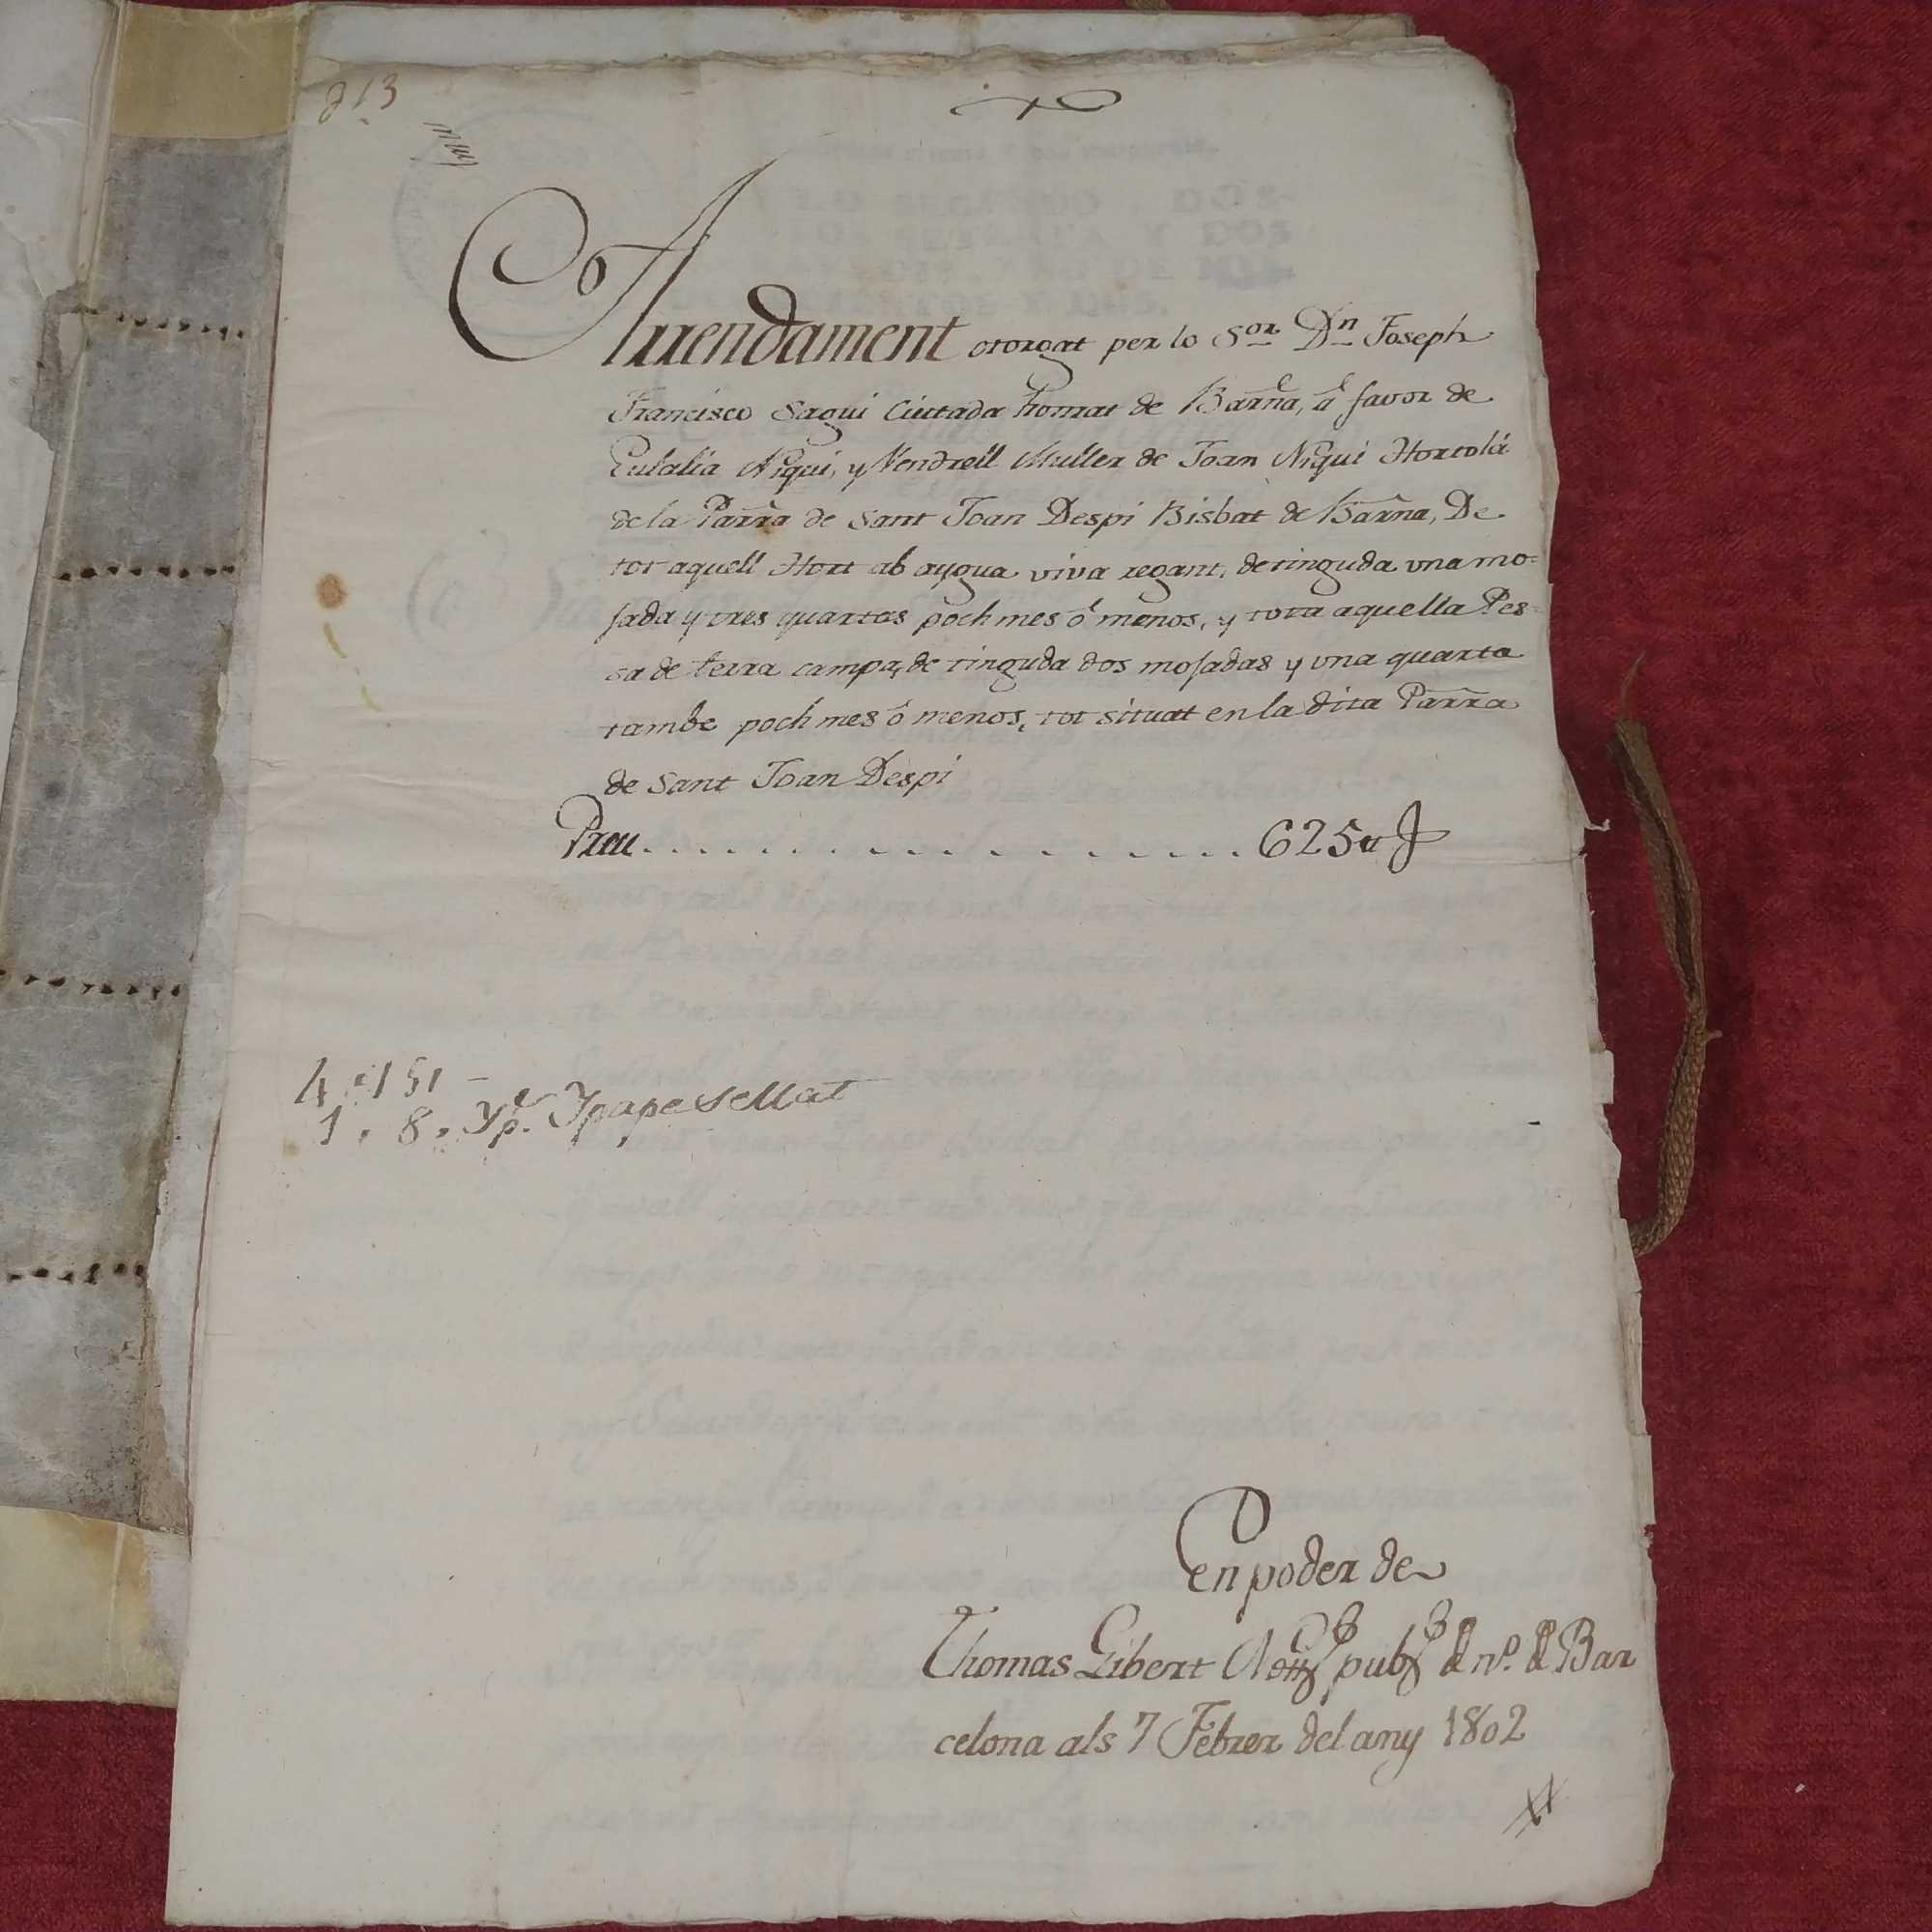 213
Arrendament otorgat per lo S.or D.n Joseph
Francisco Sagui Ciutada honrat de Barña, á favor de
Eulalia Niqui, y Vendrell Muller de Joan Niqui Hortolá
de la Parrã de Sant Joan Despi Bisbat de Barña, De
tot aquell Hort ab aygua viva regant, de tinguda una mo=
jada y tres quartas poch mes ó menos, y tota aquella Pes=
sa de terra campa, de tinguda dos mojadas y una quarta
tambe poch mes ó menos, tot situat en la dita Parrã
de Sant Joan Despi
Preu . . . . . . . . . . . . . . . . 625 ll
4 " 15
1 . 8 . Yp. Ypape sellat
En poder de
Thomas Gibert Not pub de nº. de Bar
celona als 7 Febrer del any 1802